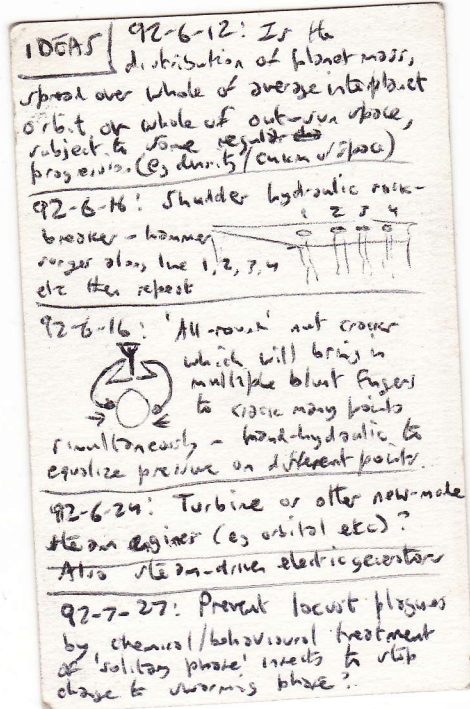 IDEAS
92-6-12: Is the
distribution of planet mass,
spread over whole of average interplanet
orbit, or whole of out-sun space,
subject to some regular
progression (eg density/cukm v/space)
92-6-16: Shudder hydraulic rock-
breaker - hammer
surges along line 1, 2, 3, 4
etc then repeat
1 2 3 4
92-6-16: 'All-round' nut cracker
which will bring in
multiple blunt fingers
to crack many points
simultaneously - hand-hydraulic to
equalize pressure on different points.
92-6-24: Turbine or other new-mode
steam engines (eg orbital etc)?
Also steam-driven electric generators
92-7-27: Prevent locust plagues
by chemical/behavioural treatment
of 'solitary phase' insects to stop
change to swarming phase?